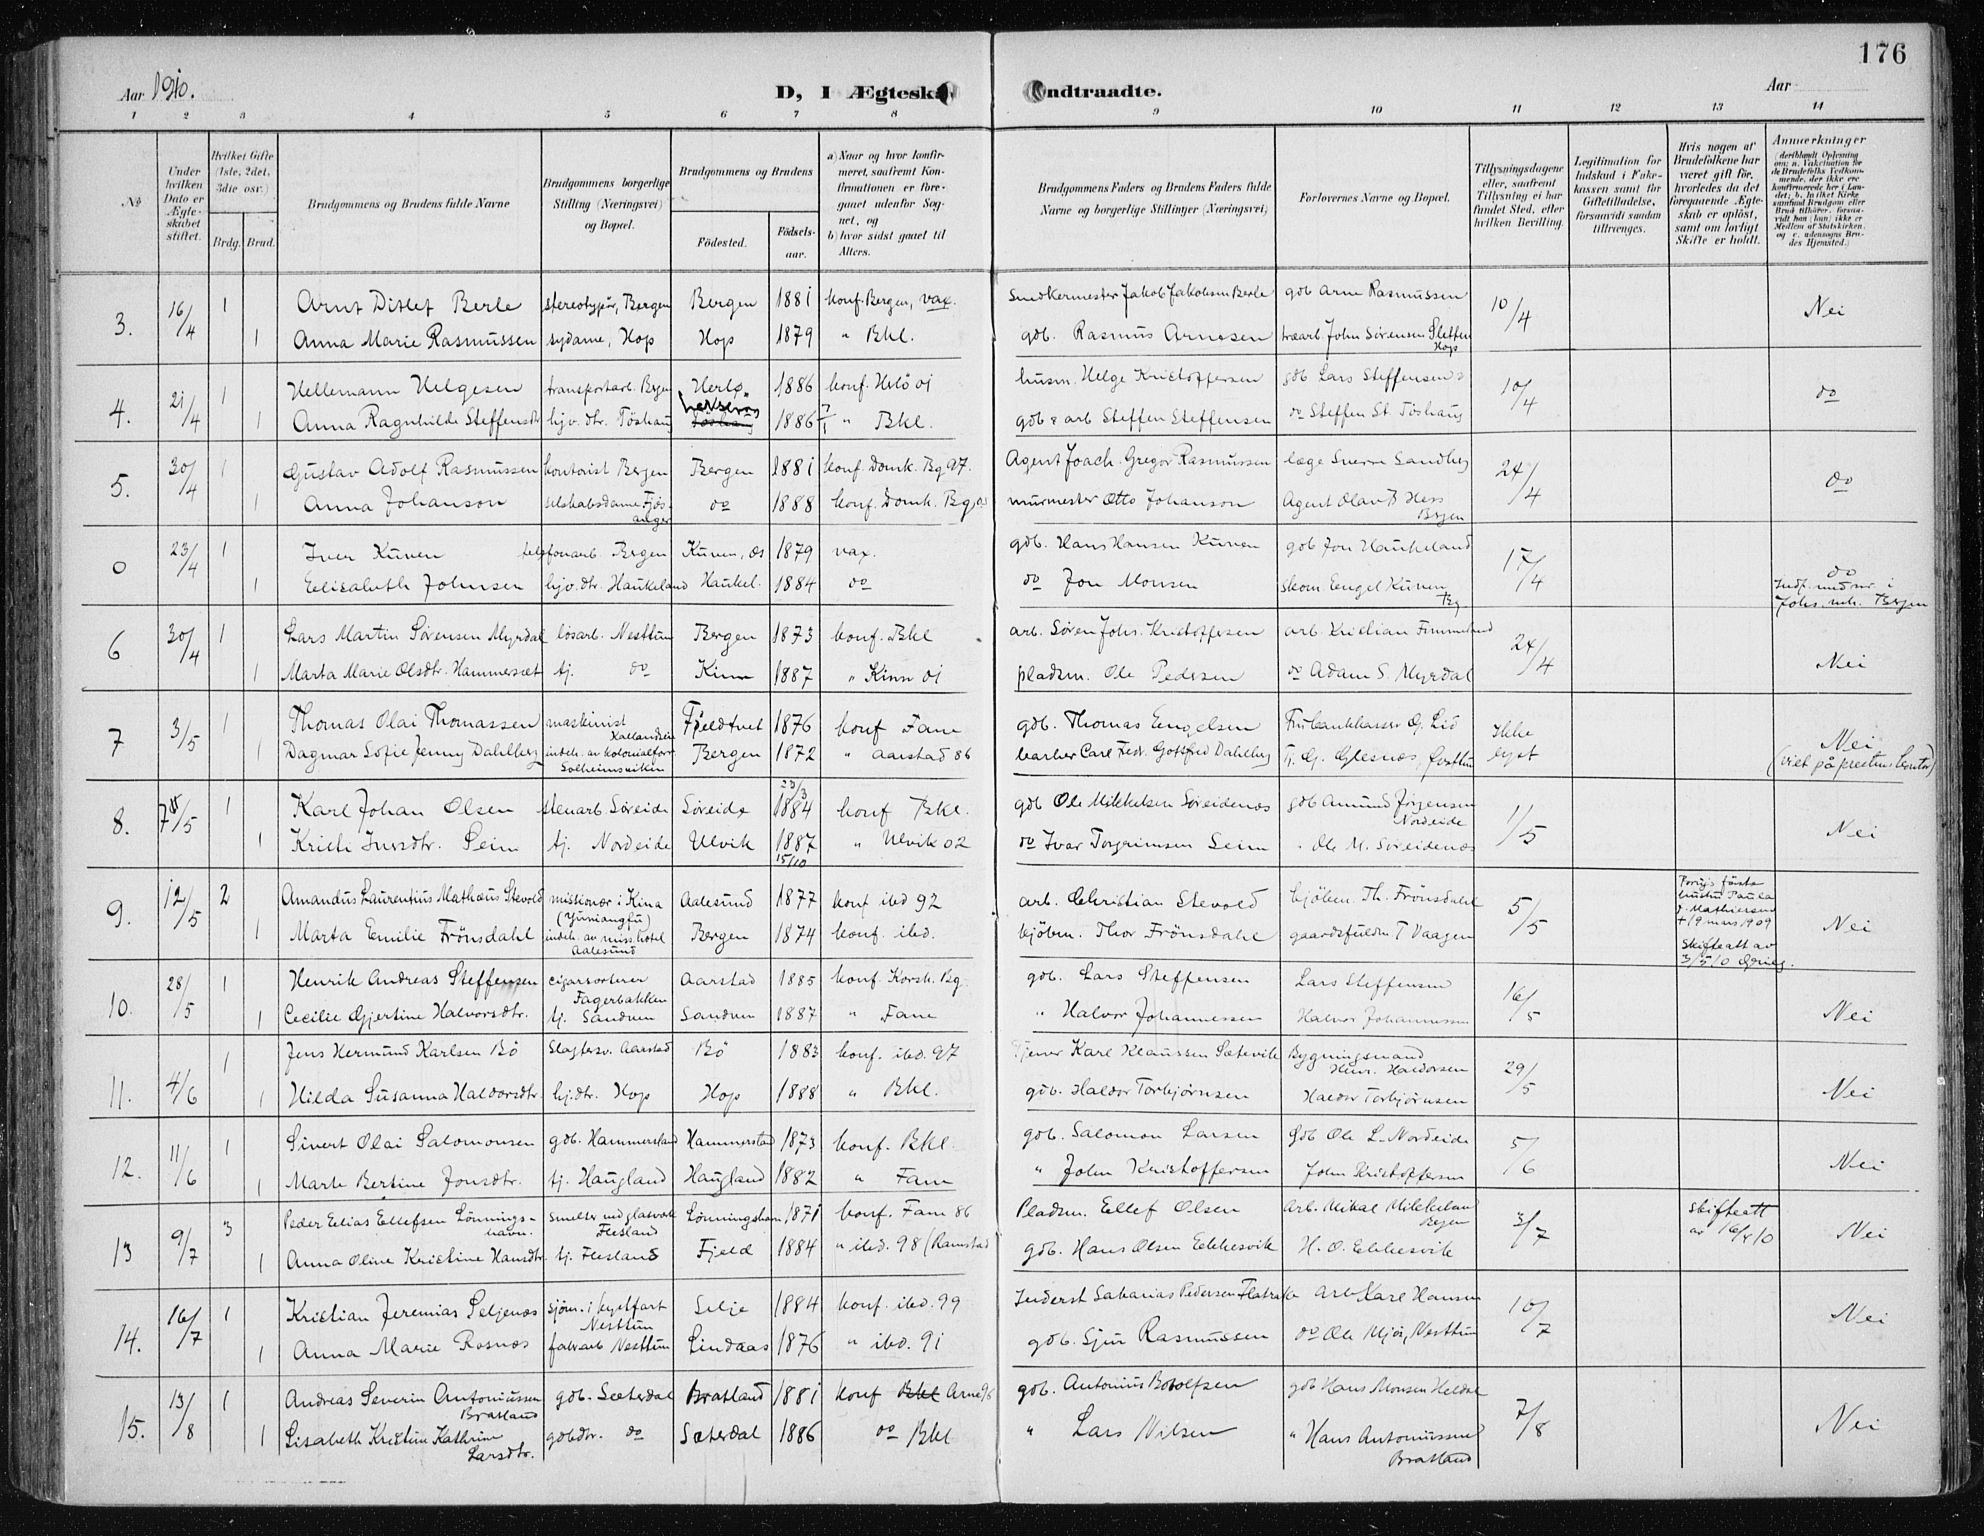 176
Aar 1910.
D, I Ægteska
Indtraadte.
Aar
1 2 3 4 5 6 7 8 9 10 11 12 13 14
No
Under hvilken Dato er Ægteskabet stiftet.
Hvilket Gifte (1ste, 2det, 3die osv.)
Brdg. Brud.
Brudgommens og Brudens fulde Navne
Brudgommens borgerlige Stilling (Næringsvei) og Bopæl.
Brudgommens og Brudens
Fødested. Fødselsaar.
a) Naar og hvor konfirmeret, saafremt Konfirmationen er foregaaet udenfor Sognet, og
b) hvor sidst gaaet til Alters.
Brudgommens Faders og Brudens Faders fulde Navne og borgerlige Stillinger (Næringsvei)
Forlovernes Navne og Bopæl.
Tillysningsdagene eller, saafremt Tillysning ei har fundet Sted, efter hvilken Bevilling.
Legitimation for Indskud i Enkekassen samt for Giftetilladelse, forsaavidt saadan tiltrænges.
Hvis nogen af Brudefolkene har været gift før, hvorledes da det foregaaende Ægteskab er opløst, samt om lovligt Skifte er holdt.
Anmærkninger
(deriblandt Oplysning om: a. Vakcination for de Brudefolks Vedkommende, der ikke ere konfirmerede her i Landet; b. hvilket Kirkesamfund Brudgom eller Brud tilhører, forsaavidt han (hun) ikke er Medlem af Statskirken, og c. udensogns Brudes Hjemsted.)
3. 16/4 1 Arnt Ditlef Berle stereotypør, Bergen Bergen 1881 konf. Bergen, vax. Snedkermester Jakob Jakobsen Berle gdb Arne Rasmussen 10/4 Nei
1 Anna Marie Rasmussen sydame, Hop Hop 1879 " Bkl. gdb. Rasmus Arnesen træarb. John Sørensen Sletten Hop
4. 21/4 1 Hellemann Helgesen transportarb. Bgen Herlø 1886 konf. Helø 01 husm. Helge Kristoffersen gdb Lars Steffensen 10/4 do
1 Anna Ragnhilde Steffensdtr hjv. dtr. Töshaug 1886 " Bkl. gdb & arb Steffen Steffensen do Steffen St. Töshaug
5. 30/4 1 Gustav Adolf Rasmussen kontorist Bergen Bergen 1881 konf. Domk. Bg 97. Agent Joach. Gregor Rasmussen læge Sverre Sandberg 24/4 do
1 Anna Johanson selskabsdame Fjösanger do 1888 konf. Domk. Bg murmester Otto Johanson Agent Olav B Hess Bergen
0 23/4 1 Iver Kuven telefonarb. Bergen Kuven, Os 1879 vax. gdb. Hans Hansen Kuven gdb Jon Haukeland 17/4 do
1 Elisabeth Johnsen hjv. dtr. Haukeland Haukel. 1884 do do Jon Monsen skom. Engel Kuven Bg Indf. under nr. i Johs. mh. Bergen
6 30/4 1 Lars Martin Sørensen Myrdal løsarb. Nesttun Bergen 1873 konf. Bkl arb. Søren Johs. Kristoffersen arb. Kristian Fimmeland 24/4
1 Marta Marie Olsdtr. Hammerset tj. do Kinn 1887 " Kinn 01 pladsm. Ole Pedersen do Adam S. Myrdal Nei
7 3/5 1 Thomas Olai Thomassen maskinist Kallandseid Fjeldtvet 1876 konf Fane gdb. Thomas Engelsen G. Lid Ikke lyst
1 Dagmar Sofie Jenny Dahlberg indeh. av kolonialforr. Solheimsviken Bergen 1872 " Aarstad 86 barber Carl Fedr. Gottfred Dahlberg G. Glesnæs, Nei (viet på prestens kontor)
8. 7/5 1 Karl Johan Olsen stenarb. Søreide Søreide 23/3 1884 konf Bkl. gdb Ole Mikkelsen Søreidenæs gdb Amund Jørgensen Nordeide 1/5
1 Kristi Iversdtr. Seim tj. Nordeide Ulvik 1887 15/10 " Ulvik 02 do Ivar Torgrimsen Seim " Ole M. Søreidenæs Nei
9. 12/5 2 Amandus Laurentius Mathæus Stevold missionær i Kina (Yuniangfu) Aalesund 1877 konf ibd 92 arb. Christian Stevold kjöbm. Th. Frönsdahl 5/5 Forrige første hustru Paula f. Mathiesen + 19 mars 1909 Skifteatt av 3/5 10 Nei
1 Marta Emilie Frönsdahl indeh. av miss.hotel Aalesund Bergen 1874 konf. ibd. kjöbm. Thor Frönsdahl gaardsfuldm T Vaagen
10. 28/5 1 Henrik Andreas Steffensen cigarsorterer Fagerbakken Aarstad 1885 konf. Korsk. Bg. gdb. Lars Steffensen Lars Steffensen 16/5
1 Cecilie Gjertine Halvorsdtr. tj. Sandven Sandven 1887 " Fane " Halvor Johannessen Halvor Johannessen Nei
11. 4/6 1 Jens Hermund Karlsen Bö Slagtersv. Aarstad Bö 1883 konf. ibd. 97 Tjener Karl Klaussen Sætevik Bygningsmand Henr. Haldorsen 29/5
1 Hilda Susanna Haldorsdtr. hj.dtr. Hop Hop 1888 " Bkl. gdb. Haldor Torbjörnsen Haldor Torbjörnsen Nei
12. 11/6 1 Sivert Olai Salomonsen gdb. Hammersland Hammersland 1873 konf. Bkl. gdb. Salomon Larsen Gdb Ole L. Nordeide 5/6
1 Marte Bertine Jonsdtr. tj. Haugland Haugland 1882 " Fane " John Kristoffersen John Kristoffersen Nei
13 9/7 3 Peder Elias Ellefsen Lönningshavn. smelter ved glasverk Flesland Lönningshavn 1871 konf. Fane 86 Pladsm. Ellef Olsen Arb. Mikal Mikkelsen Bergen 3/7 skifteatt av 16/4 10
1 Anna Oline Kristine Hansdtr. tj. Flesland Fjeld 1884 " ibd. 98 (Ramstad gdb. Hans Olsen Ekkesvik H. O. Ekkesvik Nei
14. 16/7 1 Kristian Jeremias Seljenæs sjöm. i kystfart Nesttun Selje 1884 konf. ibd. 99 Inderst Sakarias Pedersen Arb Karl Hansen 10/7 Nei
1 Anna Marie Rosnæs fabrarb Nesttun Lindaas 1876 " ibd. 91 gdb. Sjur Rasmussen do Ole Mjös, Nesttun
15. 13/8 1 Andreas Severin Antoniussen Bratland gdb. Sæterdal Bratland 1881 konf Bkl Arne 96 gdb. Antonius Botolfsen gdb Hans Monsen Heldal 7/8
1 Lisabeth Kristine Kathrine Larsdtr. gdbdtr. do Sæterdal 1886 do Bkl " Lars Nilsen " Hans Antoniussen Bratland Nei